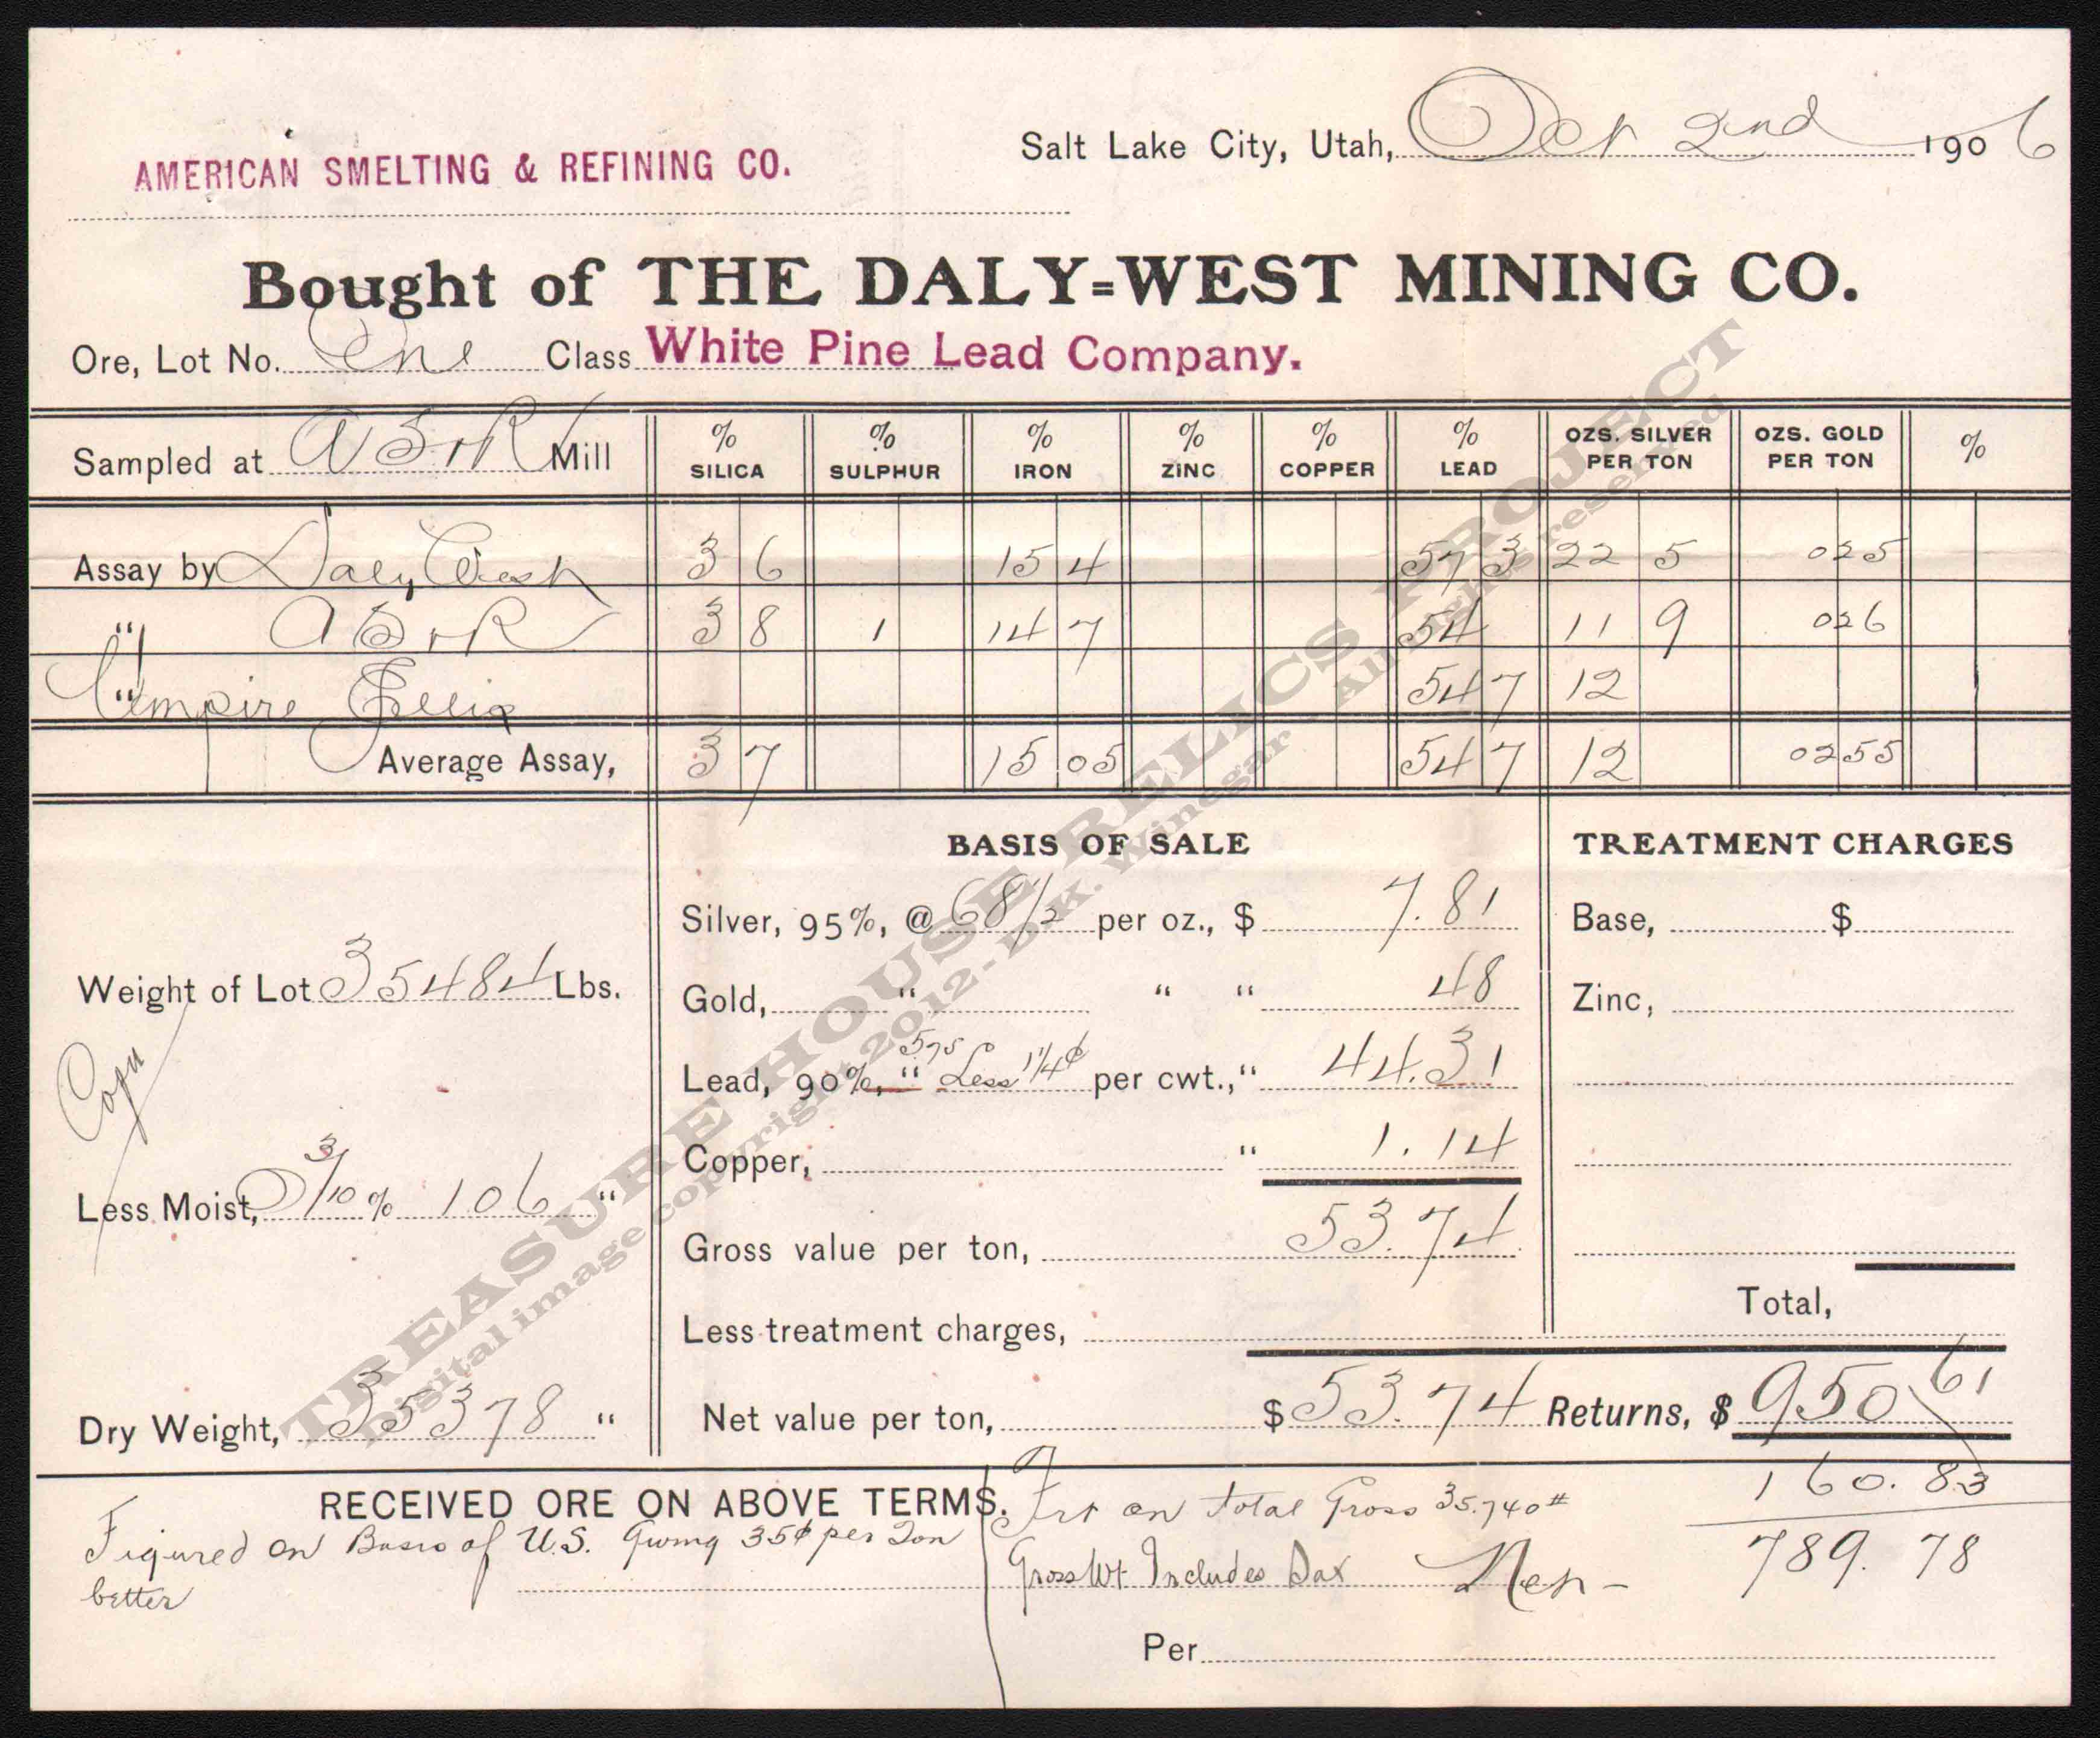 Salt Lake City, Utah, Oct 2nd 1906
AMERICAN SMELTING & REFINING CO.
Bought of THE DALY=WEST MINING CO.
Ore, Lot No. One Class White Pine Lead Company.
Sampled at A S & R Mill
% SILICA % SULPHUR % IRON % ZINC % COPPER % LEAD OZS. SILVER PER TON OZS. GOLD PER TON %
Assay by Daly West 3 6 15 4 57 3 22 5 025
" A S & R 3 8 1 14 7 54 11 9 026
" Empire 54 7 12
Average Assay, 3 7 15 05 54 7 12 0255
BASIS OF SALE
TREATMENT CHARGES
Silver, 95%, @ 68 1/2 per oz., $ 7.81
Base, $
Weight of Lot 35484 Lbs.
Gold, " " " 48
Zinc,
Copy
Lead, 90%, " 575 Less 1 1/4¢ per cwt., " 44.31
Copper, " 1.14
Less Moist, 3/10 % 106 "
Gross value per ton, 53.74
Total,
Less treatment charges,
Dry Weight, 35378 "
Net value per ton, $ 53.74 Returns, $ 950 61
160.83
RECEIVED ORE ON ABOVE TERMS.
Frt on total Gross 35.740#
Figured on Basis of U.S. Giving 35¢ per Ton
better
Gross Wt Includes Sax Net - 789.78
Per
TREASURE HOUSE RELICS PROJECT
Digital image copyright 2012 - D.K. Winegar - All rights reserved